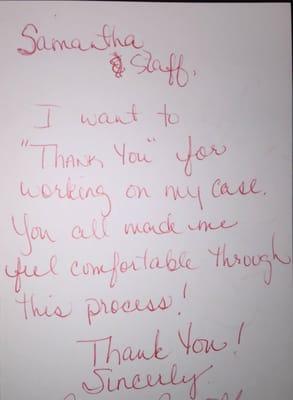 Samantha
& Staff.
I want to
"Thank You" for
working on my case.
You all made me
feel comfortable through
this process!
Thank You!
Sincerly